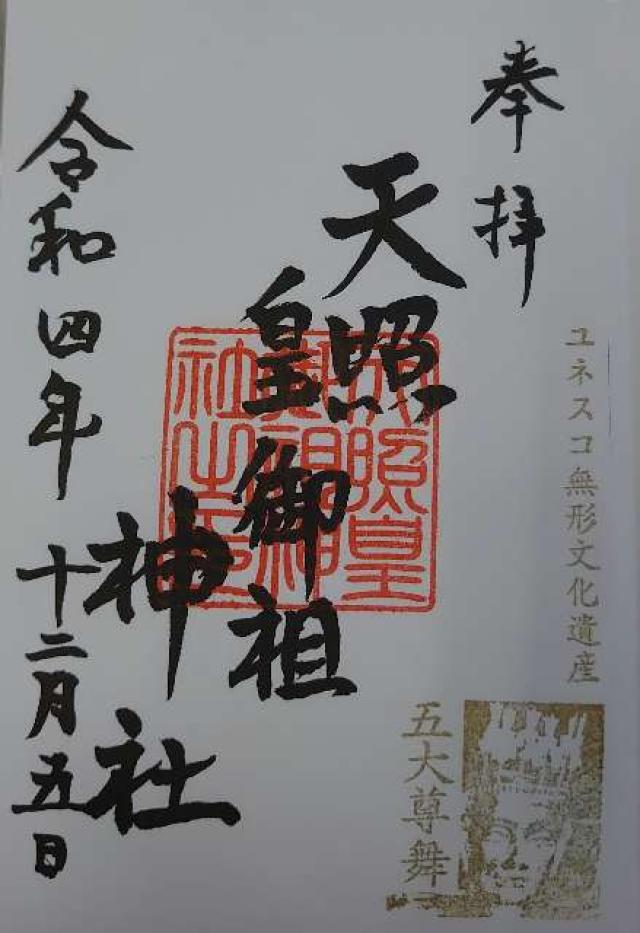 奉拝
ユネスコ無形文化遺産
五大尊舞
天照
皇御祖
神社
天照皇
御祖神
社之印
令和四年十二月五日